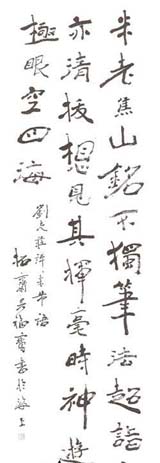 米老焦山銘不獨筆法超詣
亦清拔想見其揮毫時神遊
極眼空四海
劉克莊評米帖語
拓庸吳福寶書於海上